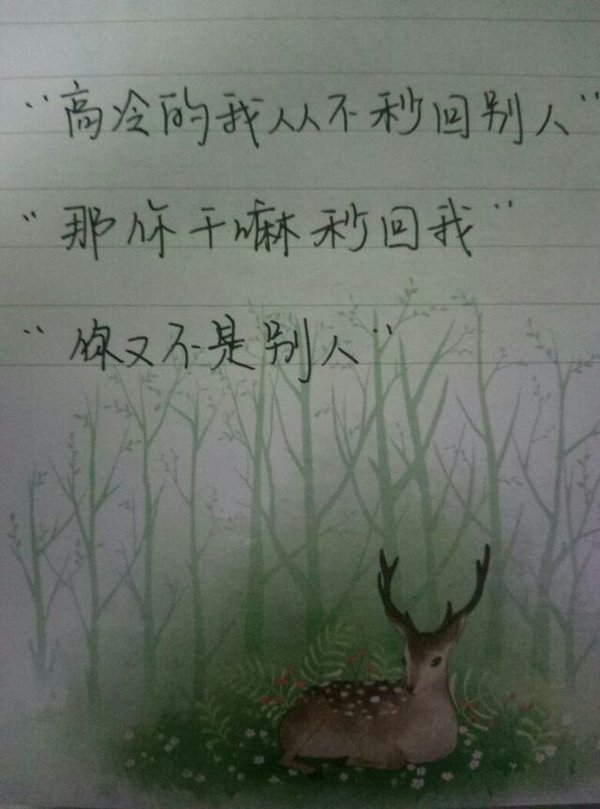 “高冷的我从不秒回别人”
“那你干嘛秒回我”
“你又不是别人”